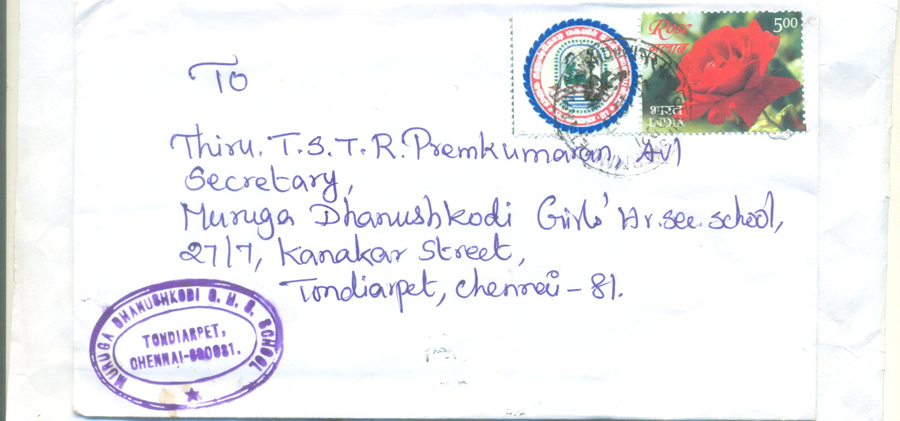 5.00
Rose
गुलाब
भारत
INDIA
TO
Thiru. T.S.T.R. Premkumaran, Avl
Secretary,
Muruga Dhanushkodi Girls' Hr. sec. school,
27/7, Kanakar Street,
Tondiarpet, Chennai - 81.
MURUGA DHANUSHKODI G. H. S. SCHOOL
TONDIARPET,
CHENNAI-600081.